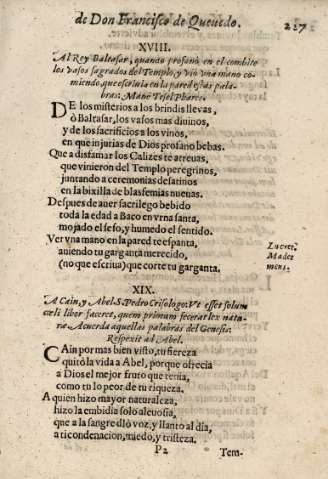 de Don Francisco de Queuedo. 227
XVIII.
Al Rey Baltasar, quando profanò en el combite
los vasos sagrados del Templo, y viò una mano co-
miendo, que escriuia en la pared estas pala-
bras: Mane Tesel Phares.
DE los misterios a los brindis lleuas,
ò Baltasar, los vasos mas diuinos,
y de los sacrificios a los vinos,
en que injurias de Dios profano bebas.
Que a disfamar los Calizes te atreuas,
que vinieron del Templo peregrinos,
juntando a ceremonias desatinos
en la bixilla de blasfemias nueuas.
Despues de auer sacrilego bebido
toda la edad a Baco en vrna santa,
mojado el seso, y humedo el sentido.
Ver vna mano en la pared te espanta,
auiendo tu garganta merecido,
(no que escriua) que corte tu garganta.
Lucret.
Madet
mens.
XIX.
A Cain, y Abel. S. Pedro Crisologo: Vt esset solum
cæli libor faceret, quem primum fecerat lex natu-
ræ Acuerda aquellas palabras del Genesis:
Respexit ad Abel.
CAin por mas bien visto, tu fiereza
quitò la vida a Abel, porque ofrecia
a Dios el mejor fruto que tenia,
como tu lo peor de tu riqueza.
A quien hizo mayor naturaleza,
hizo la embidia solo aleuosia,
que a la sangre diò voz, y llanto al dia,
a ti condenacion, miedo, y tristeza.
P2 Tem-